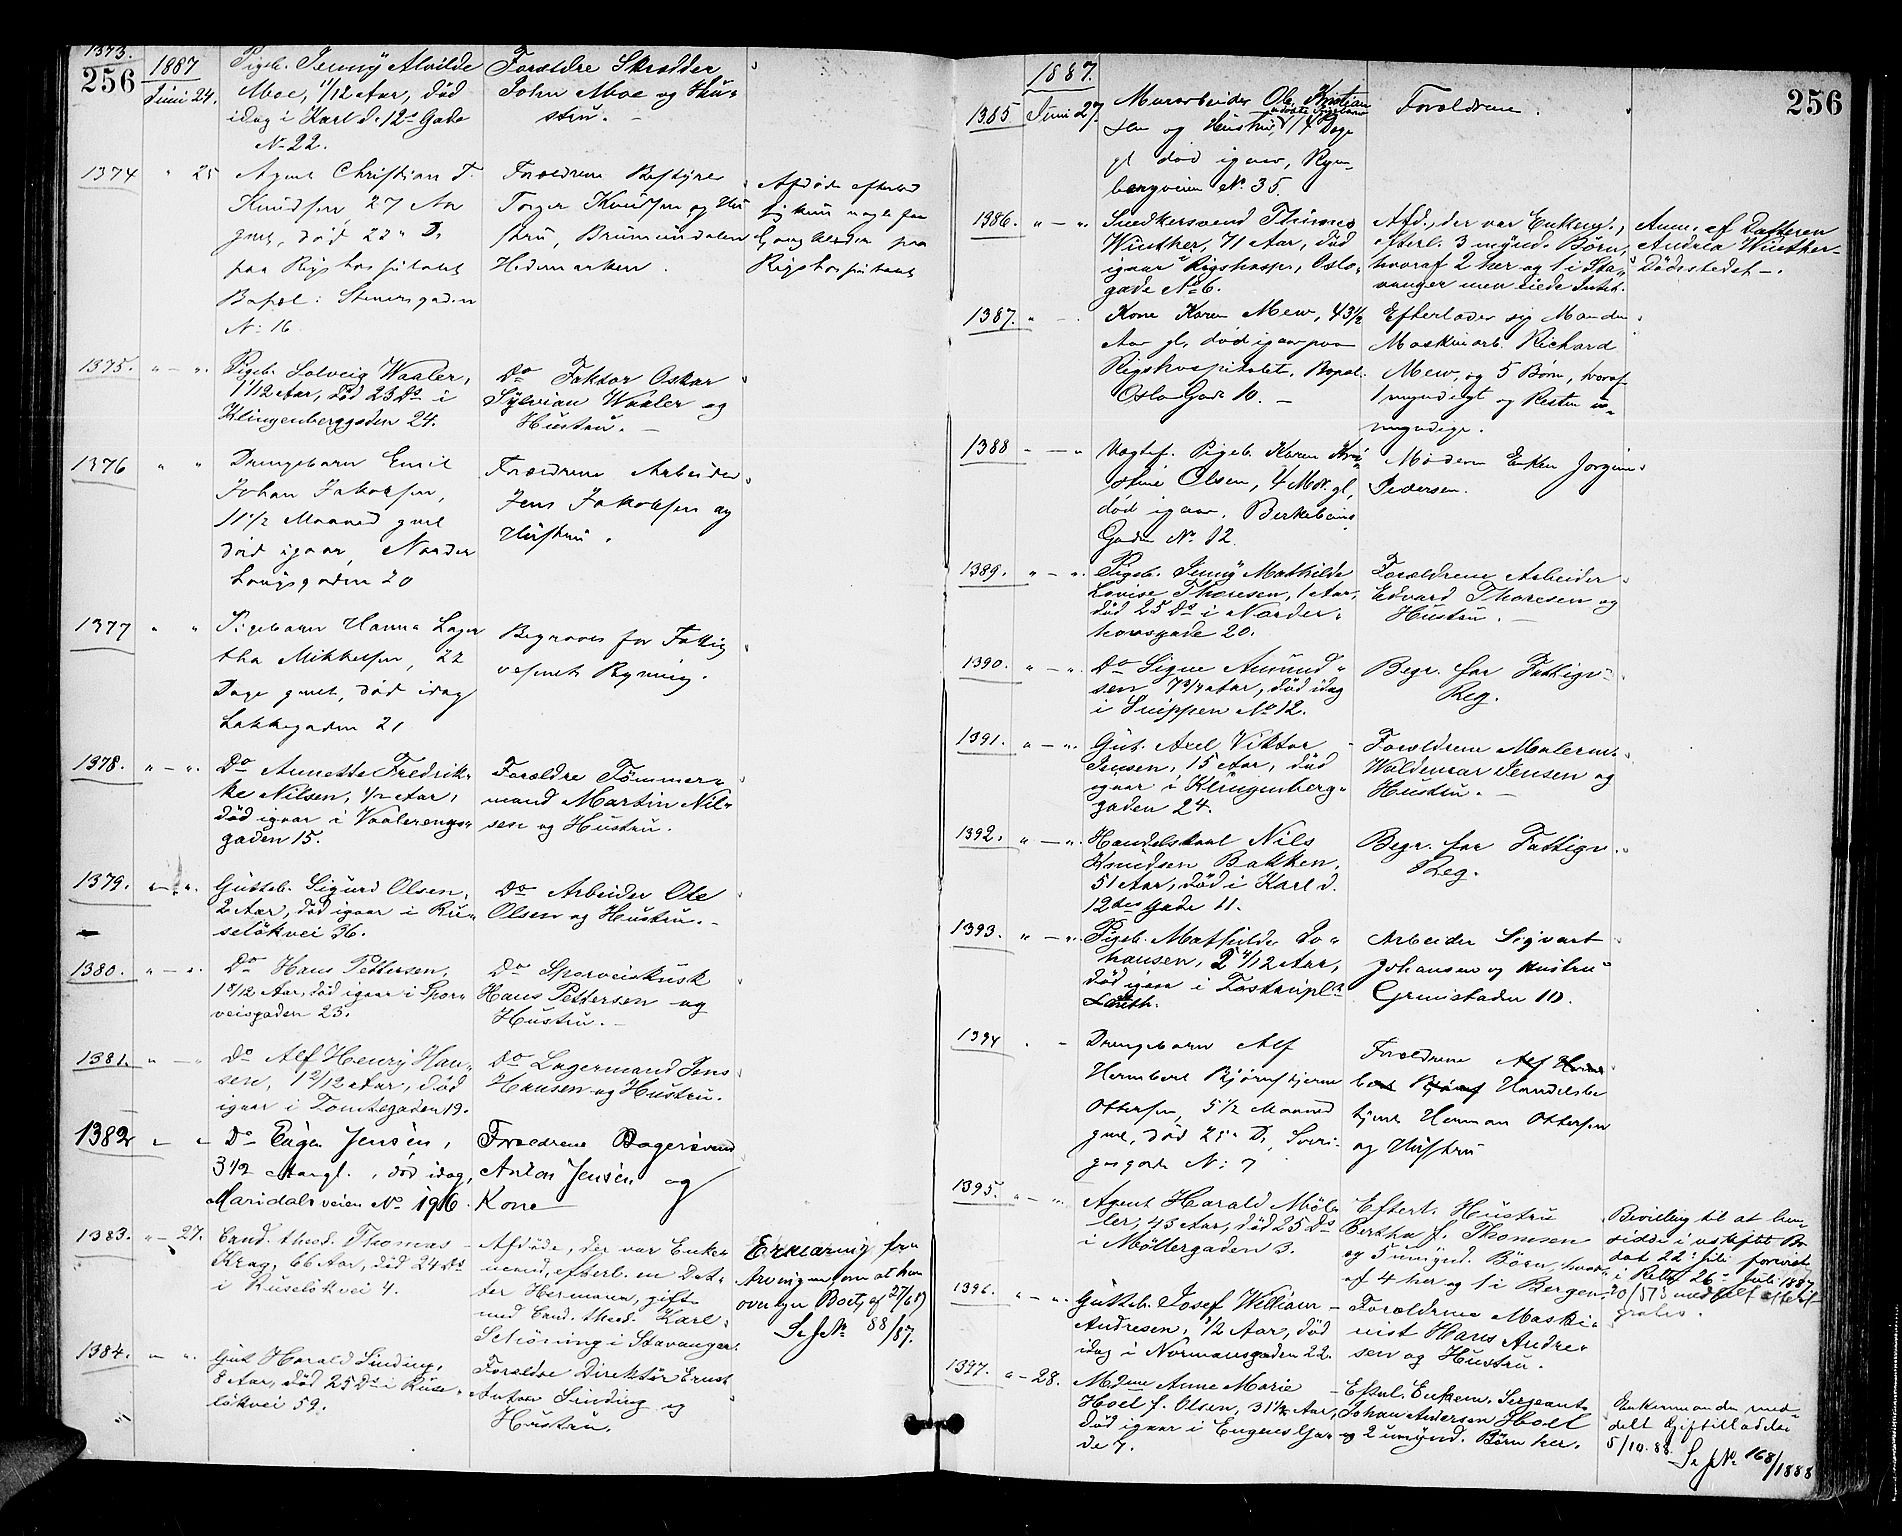 1373.
256
1887
Juni 24.
Pigeb. Jenny Alvilde
Moe, 1/12 Aar, død
idag i Karl d. 12s Gade
No 22.
Forældre Skrædder
John Moe og Hu-
stru. —
1374 " 25
Agent Christian T.
Knudsen, 27 Aar
gml, død 22. D.
paa Rigshospitalet
Bopæl: Stenersgaden
N: 16
Forældrene Bestyrer
Torger Knudsen og Hu
stru, Brumundalen
Hedemarken.
Afdøde efterlod
sig kun nogle faa
Gangklæder paa
Rigshospitalet
1375. " — "
Pigeb. Solveig Waaler,
1 1/12 Aar, død 23 Ds i
Klingenberggaden 24.
Do Faktor Oskar
Sylvian Waaler og
Hustru. —
1376 " "
Drengebarn Emil
Johan Jakobsen,
11 1/2 Maaned gml
død igaar, Nordre
Langgaden 20
Forældrene Arbeider
Jens Jakobsen og
Hustru.
1377 " "
Pigebarn Hanna Lager
tha Mikkelsen, 22
Dage gml, død idag
Lakkegaden 21
Begraves for Fattig
væsenets Regning.
1378. " — "
Do Annette Fredrik-
ke Nilsen, 1/2 Aar,
død igaar i Vaalerengs-
gaden 15.
Forældre Tømmer-
mand Martin Nil-
sen og Hustru.
1379. " — "
Gutteb. Sigurd Olsen,
2 Aar, død igaar i Ru-
seløkvei 36.
Do Arbeider Ole
Olsen og Hustru. —
1380. " — "
Do Hans Pettersen,
1 8/12 Aar, død igaar i Spor-
veisgaden 23.
Do Sporveiskusk
Hans Pettersen og
Hustru. —
1381. " — "
Do Alf Henry Han-
sen, 1 2/12 Aar, død
igaar i Tomtegaden 19.
Do Lagermand Jens
Hansen og Hustru.
1382 " "
Do Eugen Jensen,
3 1/2 Aargl., død idag,
Maridalsveien No 196.
Forældrene Bagersvend
Anton Jensen og
Kone
1383. " — 27.
Cand. theol. Thomas
Krag, 66 Aar, død 24 Ds
i Ruseløkvei 4.
Afdøde, der var Enke-
mand, efterl. en Dat-
ter Hermana, gift
med Cand. theol. Karl
Schiøning i Stavanger.
Erklæring fra
Arvingen om at han
overtager Boet, af 27/6 87
Se J. No 88/87.
1384. " — "
Gut Harald Sinding,
8 Aar, død 25 Ds i Ruse-
løkvei 59.
Forældre Direktør Ernst
Anton Sinding og
Hustru.
256
1887.
1385 Juni 27.
Murarbeider Ole Kristian
sen og Hustrus 14 Dage
gl død igaar, Ryen-
bergveien No 35.
Forældrene.
1986. " — "
Snedkersvend Thomas
Winther, 71 Aar, død
igaar Rigshosp., Oslo-
gade No 6.
Afd., der var Enkemd.,
efterl. 3 mynd. Børn,
hvoraf 2 her og 1 i Sta-
vanger men eiede Intet.
Anm. af Datteren
Andrea Winther
Dødsstedet —.
1387. " —
Kone Karen Mew, 43 1/2
Aar gl, død igaar paa
Rigshospitalet. Bopæl
Oslo Gade 10. —
Efterlader sig Manden
Maskinarb. Richard
Mew, og 5 Børn, hvoraf
1 myndigt og Resten u-
myndige.
1388 " — "
Vogtef. Pigeb. Karen Kri-
stine Olsen, 4 Mdr. gl,
død igaar, Birkebeins
Gaden No 12.
Moderen Enken Jorgine
Pedersen.
1389. " — "
Pigeb. Jenny Mathilde
Lovise Thoresen, 1 Aar,
død 25 Ds i Norder-
hovsgade 20.
Forældrene Arbeider
Edvard Thoresen og
Hustru. —
1390. " — "
Do Signe Amund-
sen 7 3/4 Aar, død idag
i Snippen No 12.
Begr. for Fattigv.
Reg.
1391. " — "
Gut. Axel Viktor
Jensen, 15 Aar, død
igaar i Klingenberg-
gaden 24.
Forældrene Malerm.
Waldemar Jensen og
Hustru. —
1392. " — "
Handelskarl Nils
Knudsen Bakken,
51 Aar, død i Karl d.
12tes Gade 11.
Begr. for Fattigv.
Reg.
1393. " — "
Pigeb. Mathilde Jo-
hansen, 2 4/12 Aar,
død igaar i Tostrupl-
Arbeider Sigvart
Johansen og Hustru
Grønstaden 10.
1394 " "
Drengebarn Alf
Hermbert Bjørnstjerne
Ottersen, 5 1/2 Maaned
gml, død 25. D, Sveri-
gesgade N: 7
Forældrene Alf
Handelsbe
tjent Herman Ottersen
og Hustru
1395. " — "
Agent Harald Møl-
ler, 45 Aar, død 25 Ds
i Møllergaden 3.
Efterl. Hustru
Birtha f. Thomsen
og 5 umynd. Børn, hvor-
af 4 her og 1 i Bergen.
Bevilling til at hen-
sidde i uskiftet Bo
dat 22. Juli forevist
i Retten 26. Juli 1887
1396. " — "
Gutteb. Josef William
Andresen, 1/2 Aar, død
idag i Normansgaden 22.
Forældrene Maski-
nist Hans Andre-
sen og Hustru.
1397. " — 28.
Mdme Anne Marie
Hoel f. Olsen, 31 1/2 Aar,
død igaar i Eugenis Ga-
de 7.
Efterl. Enkem. Sergeant
Johan Andersen Hoel
og 2 umynd. Børn her.
Enkemanden med-
delt Giftetilladelse
5/10 88.
Se J No 168/1888